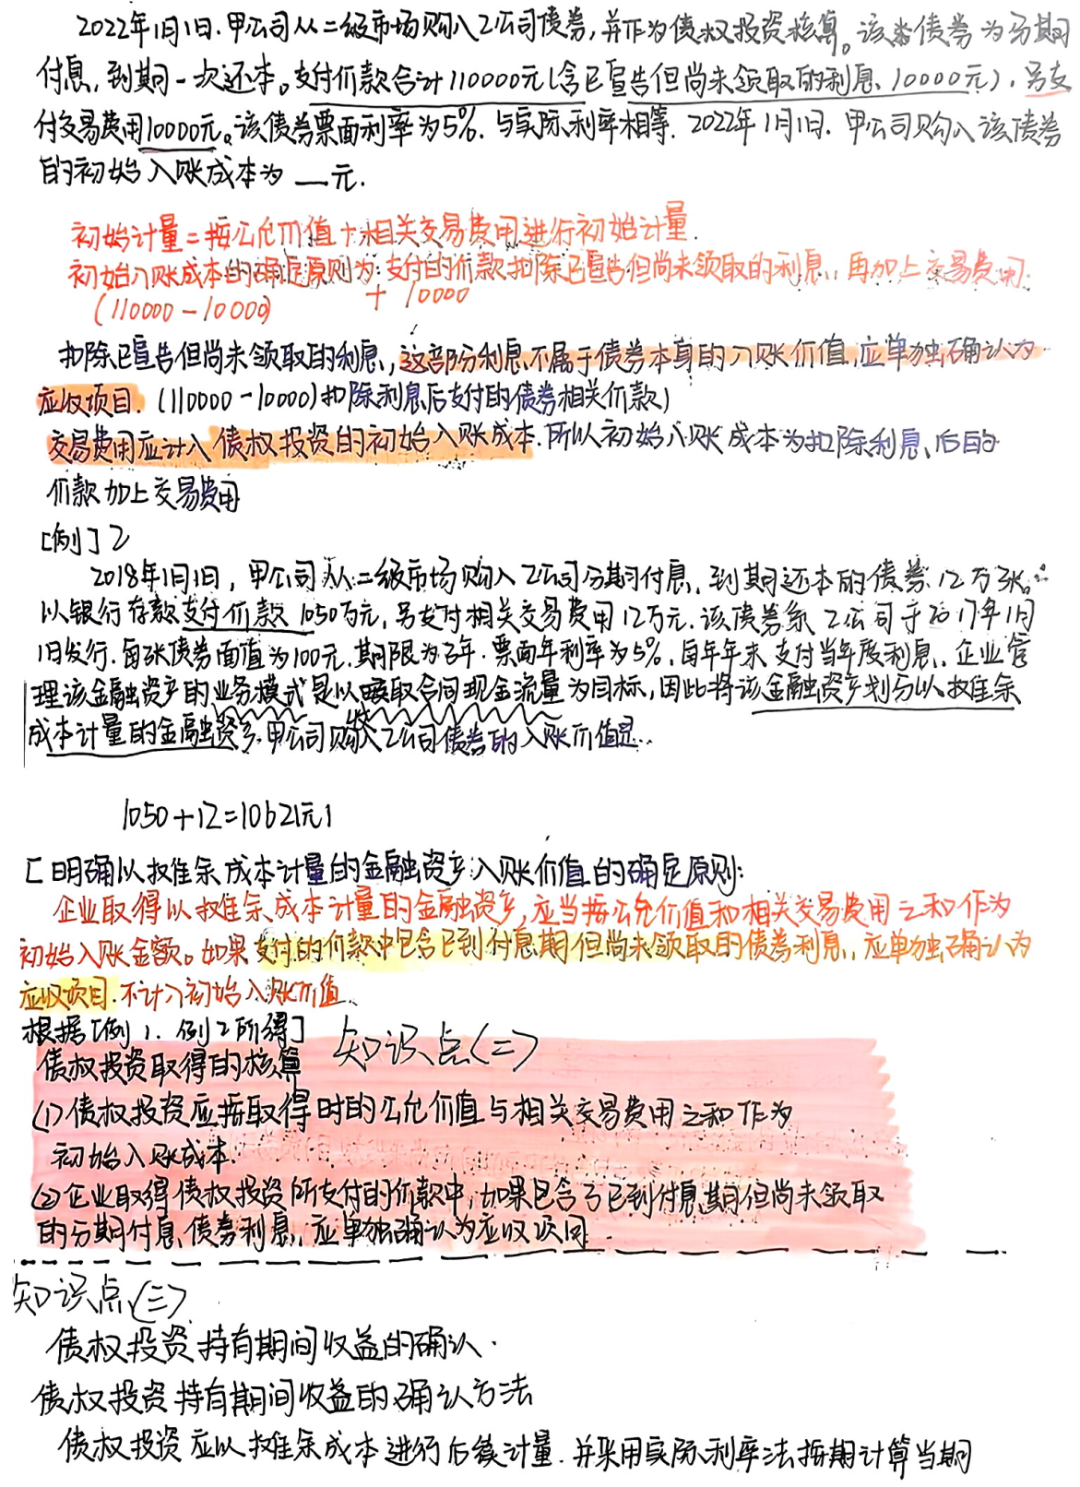 2022年1月1日,甲公司从二级市场购入乙公司债券,并作为债权投资核算。该券债券为分期
付息,到期一次还本。支付价款合计110000元(含已宣告但尚未领取的利息10000元),另支
付交易费用10000元。该债券票面利率为5%,与实际利率相等,2022年1月1日,甲公司购入该债券
的初始入账成本为__元.
初始计量=按公允价值+相关交易费用进行初始计量.
初始入账成本的确定原则为:支付的价款扣除已宣告但尚未领取的利息,再加上交易费用.
(110000-10000) + 10000
扣除已宣告但尚未领取的利息,这部分利息不属于债券本身的入账价值,应单独确认为
应收项目.(110000-10000)扣除利息后支付的债券相关价款)
交易费用应计入债权投资的初始入账成本.所以初始入账成本为扣除利息后的
价款加上交易费用
[例]2
2018年1月1日,甲公司从二级市场购入乙公司分期付息、到期还本的债券12万张.
以银行存款支付价款1050万元,另支付相关交易费用12万元.该债券系乙公司于2017年1月
1日发行.每张债券面值为100元.期限为3年.票面年利率为5%,每年年末支付当年度利息.企业管
理该金融资产的业务模式是以收取合同现金流量为目标,因此将该金融资产划分以摊余
成本计量的金融资产.甲公司购入乙公司债券的入账价值是..
1050+12=1062[元]
[明确以摊余成本计量的金融资产入账价值的确定原则:
企业取得以摊余成本计量的金融资产,应当按公允价值和相关交易费用之和作为
初始入账金额。如果支付的价款中包含已到付息期但尚未领取的债券利息,应单独确认为
应收项目.不计入初始入账价值.
根据[例1.例2所得] 知识点(二)
债权投资取得的核算
(1)债权投资应按取得时的公允价值与相关交易费用之和作为
初始入账成本.
(2)企业取得债权投资所支付的价款中,如果包含了已到付息期但尚未领取
的分期付息债券利息,应单独确认为应收项目.
知识点(三)
债权投资持有期间收益的确认.
债权投资持有期间收益的确认方法
债权投资应以摊余成本进行后续计量.并采用实际利率法按期计算当期